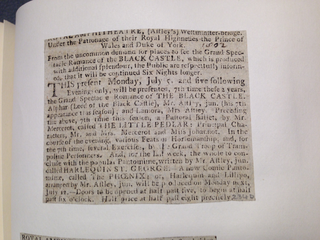 ROYAL AMPHITHEATRE, (Astley's) Westminster-bridge.
Under the Patronage of their Royal Highnesses the Prince of
Wales and Duke of York. 1802
From the uncommon demand for places to see the Grand Spec-
tacle Romance of the BLACK CASTLE, which is produced
with additional splendour, the Public are respectfully inform-
ed, that it will be continued Six Nights longer.
THIS present Monday, July 5, and five following
Evenings only, will be presented, 7th time these 2 years,
the Grand Spectacle Romance of THE BLACK CASTLE.
(Lord of the Black Castle), Mr. Astley, jun. (his 7th
appearance this season) and Mrs. Astley. Preceding
the above, 7th time this season, a Pastoral Ballet, by Mr.
called THE LITTLE PEDLAR: Principal Cha-
racters, Mr. and Mrs. and Miss Johnston. In the
course of the evening, various Feats in Horsemanship, and, for
the 7th time, several Exercises, by a Grand Troop of Tram-
poline Performers. And, for the last week, the whole to con-
clude with the popular Pantomime, written by Mr. Astley, jun.
called HARLEQUIN ST. GEORGE. A new Comic Panto-
mime, called THE PHENIX; or, Harlequin and Lillipo,
by Mr. Astley, jun. will be produced on Monday next,
July 12. Doors to be opened at half past five, to begin at half
past six o'clock. Half price at half past eight precisely.
ROYAL